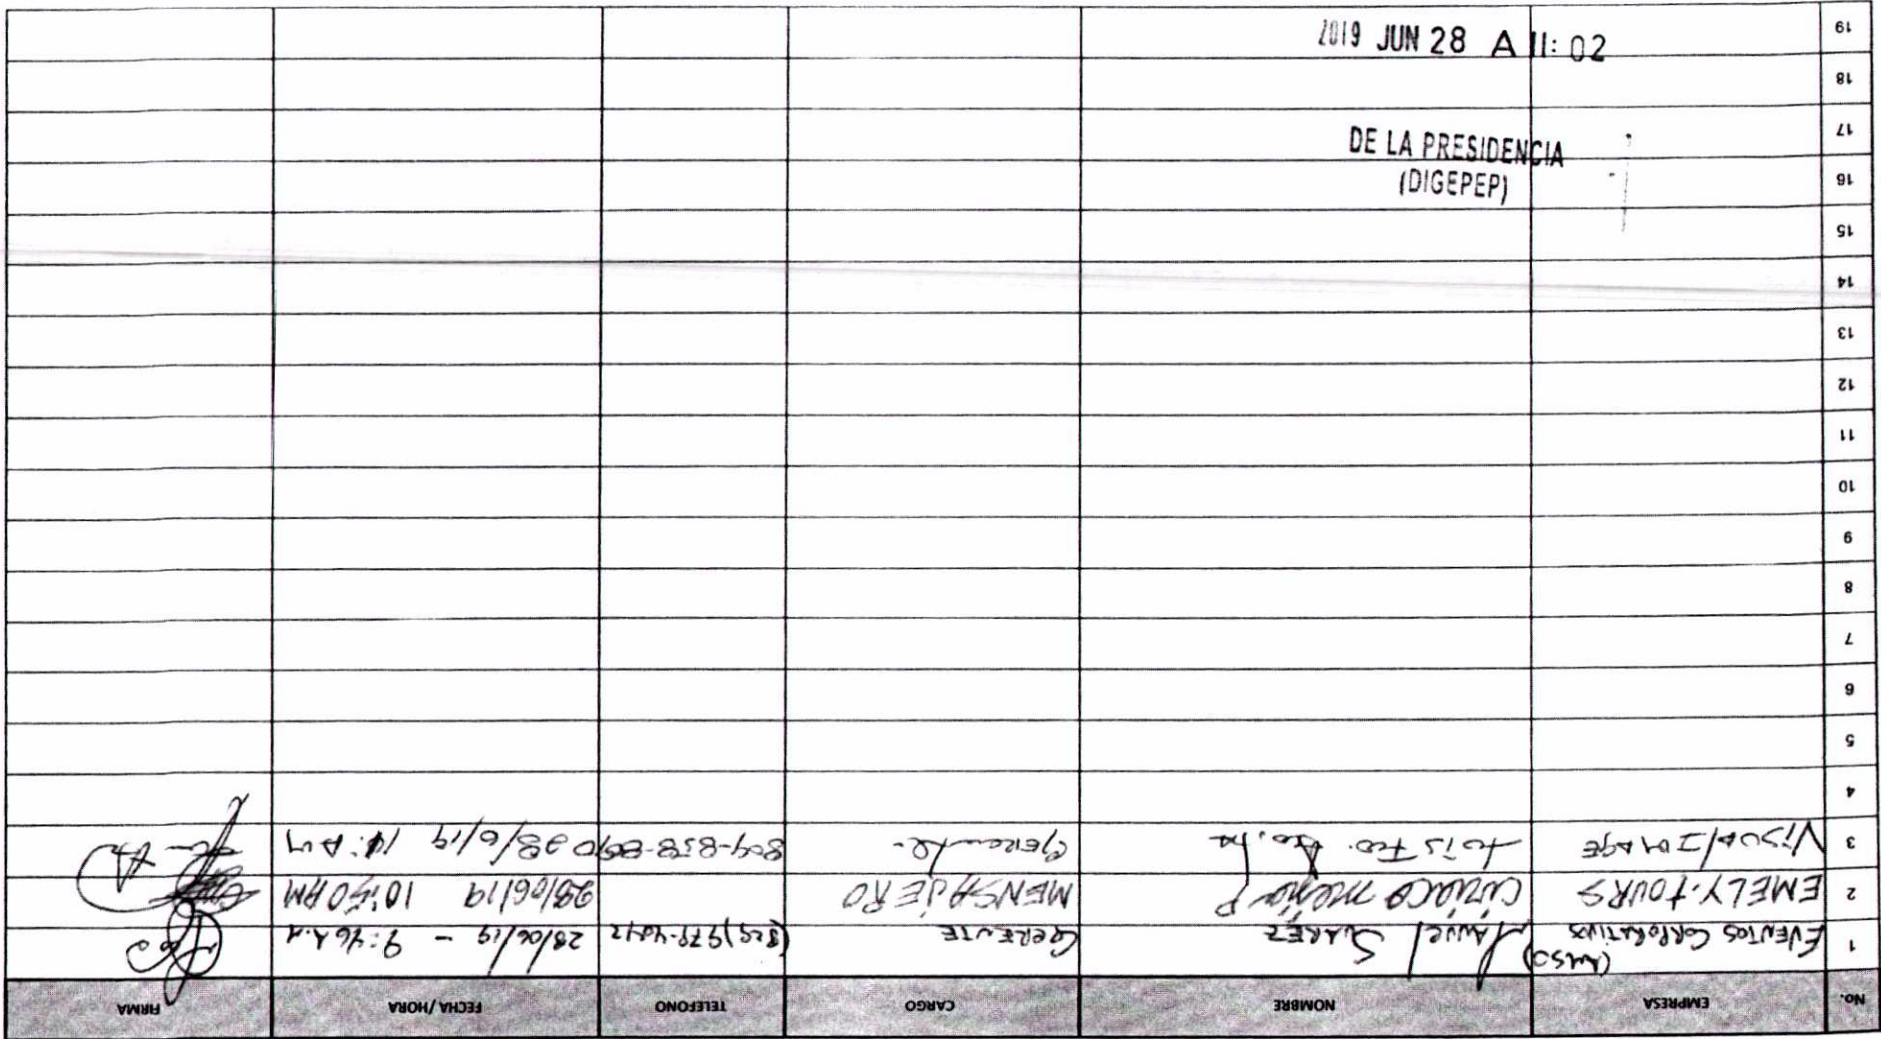 No. EMPRESA NOMBRE CARGO TELEFONO FECHA/HORA FIRMA
1 EVENTOS CORPORATIVOS Manuel SUAREZ GERENTE 28/06/19 - 9:46 A.M
2 EMELY TOURS Ciriaco mejia P MENSAJERO 28/06/19 10:50 AM
3 Visual IMAGE Luis Fco. Gerente 28/6/19
4
5
6
7
8
9
10
11
12
13
14
15
16
17
18
19
DE LA PRESIDENCIA
(DIGEPEP)
2019 JUN 28 A 11:02